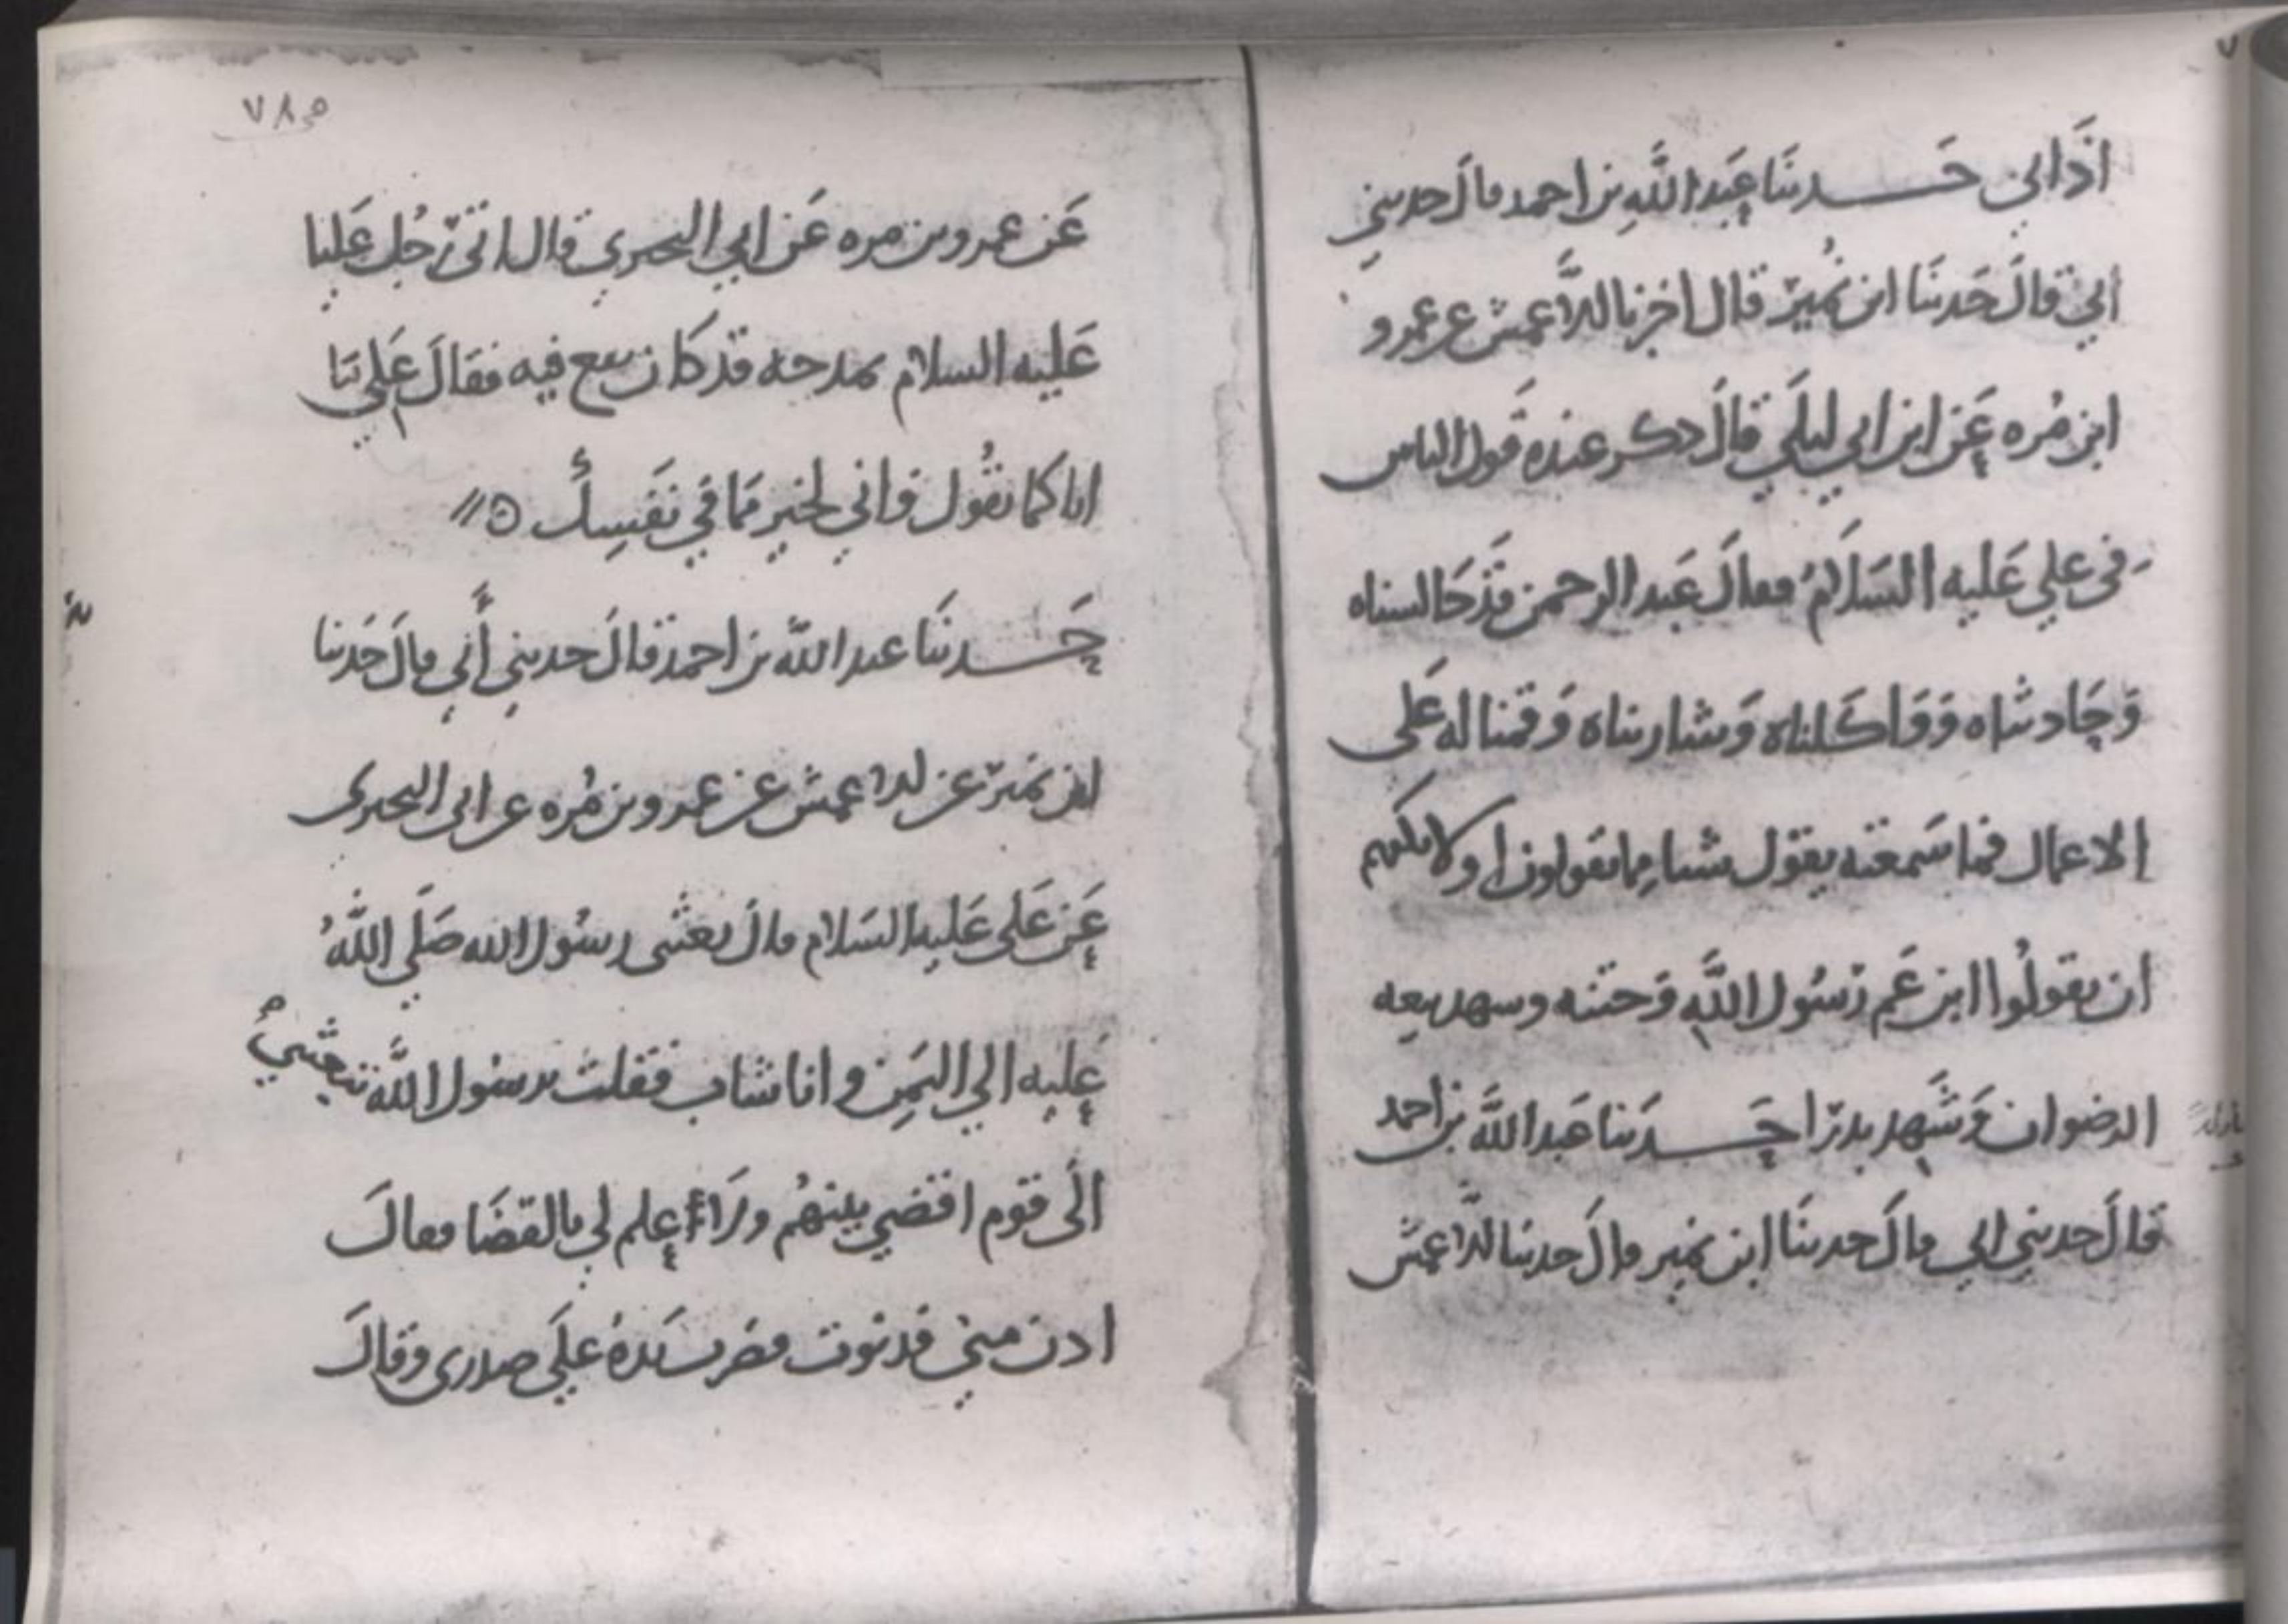 اذَاني حَدثنَا عَبد اللَّهِ بن احمد قالَ حدثني
ابي قالَ حَدثنَا ابن نُمير قال اخبرنا الاَعمش عن عمرو
ابن مُره عَن ابن ابي ليلَي قالَ ذكر عنده قَول الناس
في علي عَليه السَلاَمُ فقالَ عَبد الرحمن قَد جَالسناه
وَحَادثناه وَوَاكَلناه وَشاربناه وَقمنا له عَلى
الاعمال فما سَمعته يقول شيا مما يقولون اولا يكفيكم
ان يقولُوا ابن عَم رَسُول اللَّهِ وَختنه وشهد بيعه
الرضوان وَشَهد بدرًا حَدثنا عَبد اللَّه بن احمد
قالَ حدثني ابي قالَ حدثنَا ابن نمير قالَ حدثنا الاَعمش
٧٨
عَن عمرو بن مره عَن ابي البختري قال اتى رَجُل عَليا
عَليه السلام يمدحه قد كان يقع فيه فقالَ عَلي مَا
انا كما تقُول واني لخير مَما في نفَسِكُ ه
حَدثنَا عبد اللَّه بن احمد قالَ حدثني أَبي قالَ حَدثنا
ابن نمير عن الاعمش عن عمرو بن مُره عن ابى البختري
عَن عَلى عَليه السَلام قالَ بعثنى رسُول الله صَلَي اللَّهُ
عَليه الي اليَمن وانا شاب فقلت يرسُول اللَّه تبعثني
الَى قوم اقضي بينهُم ولاَ اعلم لي بالقضَا فقالَ
ادن مني فدنوت فضرب يَدهُ علَي صدرى وقالَ